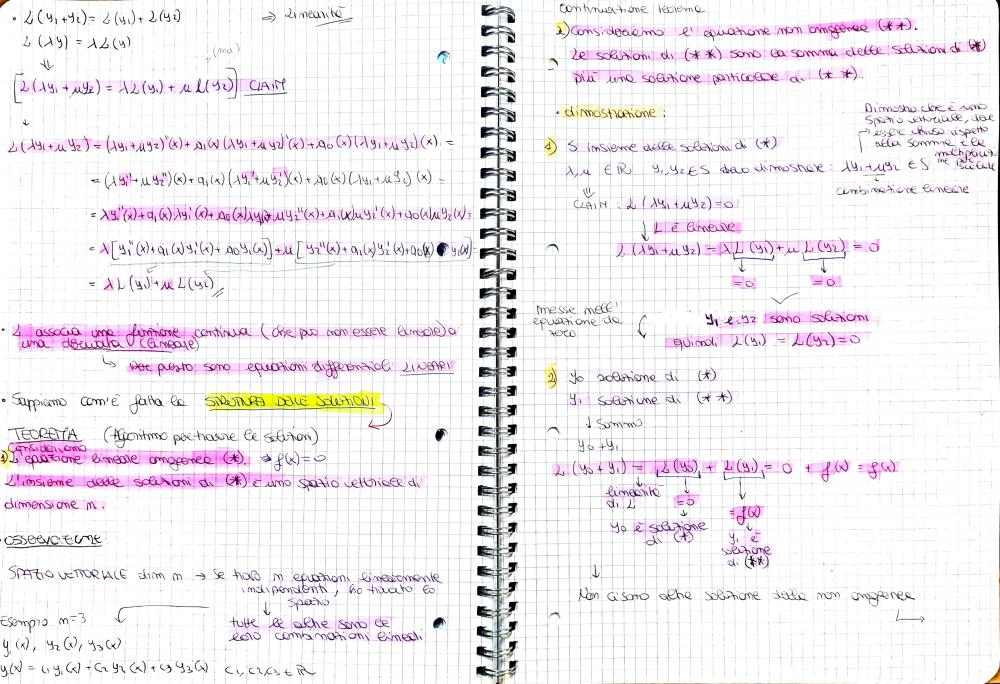 • L(y1+y2) = L(y1) + L(y2) ⇒ Linearità
L(λy) = λL(y)
(ma)
⇓
[L(λy1+μy2) = λL(y1) + μL(y2)] CLAIM
↓
L(λy1+μy2) = (λy1+μy2)''(x) + a1(x)(λy1+μy2)'(x) + a0(x)(λy1+μy2)(x) =
= (λy1''+μy2'')(x) + a1(x)(λy1'+μy2')(x) + a0(x)(λy1+μy2)(x) =
= λy1''(x) + a1(x)λy1'(x) + a0(x)λy1 + μy2''(x) + a1(x)μy2'(x) + a0(x)μy2(x) =
= λ[y1''(x) + a1(x)y1'(x) + a0y1(x)] + μ[y2''(x) + a1(x)y2'(x) + a0(x) y2(x)] =
= λL(y1) + μL(y2) //
• L associa una funzione continua (che può non essere lineare) a
una derivata (lineare)
↳ Per questo sono equazioni differenziali LINEARI
• Sappiamo com'è fatta la STRUTTURA DELLE SOLUZIONI
TEOREMA (Algoritmo per trovare le soluzioni)
consideriamo
1) L'equazione lineare omogenea (*). → f(x)=0
L'insieme delle soluzioni di (*) è uno spazio vettoriale di
dimensione n.
• OSSERVAZIONE:
SPAZIO VETTORIALE dim n → se trovo n equazioni linearmente
indipendenti, ho trovato lo
spazio
↓
tutte le altre sono le
loro combinazioni lineari
Esempio n=3
y1(x), y2(x), y3(x)
y(x) = c1y1(x) + c2y2(x) + c3y3(x) c1,c2,c3 ∈ R
continuazione teorema
2) Consideriamo l'equazione non omogenea (**).
Le soluzioni di (**) sono la somma delle soluzioni di (*)
più una soluzione particolare di (**).
• dimostrazione:
Dimostro che è uno
spazio vettoriale, deve
essere chiuso rispetto
alla somma e la
moltiplicazione per scalare
1) S insieme delle soluzioni di (*)
λ, μ ∈ R y1,y2∈S devo dimostrare: λy1+μy2 ∈ S
combinazione lineare
⇓
CLAIM: L(λy1+μy2)=0
↓ L è lineare
L(λy1+μy2) = λL(y1) + μL(y2) = 0
=0 =0
messe nell'
equazione da
zero
y1 e y2 sono soluzioni
quindi L(y1) = L(y2) = 0
2) y0 soluzione di (*)
y1 soluzione di (**)
↓ Sommo
y0+y1
L(y0+y1) = L(y0) + L(y1) = 0 + f(x) = f(x)
linearità
di L
=0
y0 è soluzione
di (*)
=f(x)
y1 è
soluzione
di (**)
↓
Non ci sono altre soluzione della non omogenea